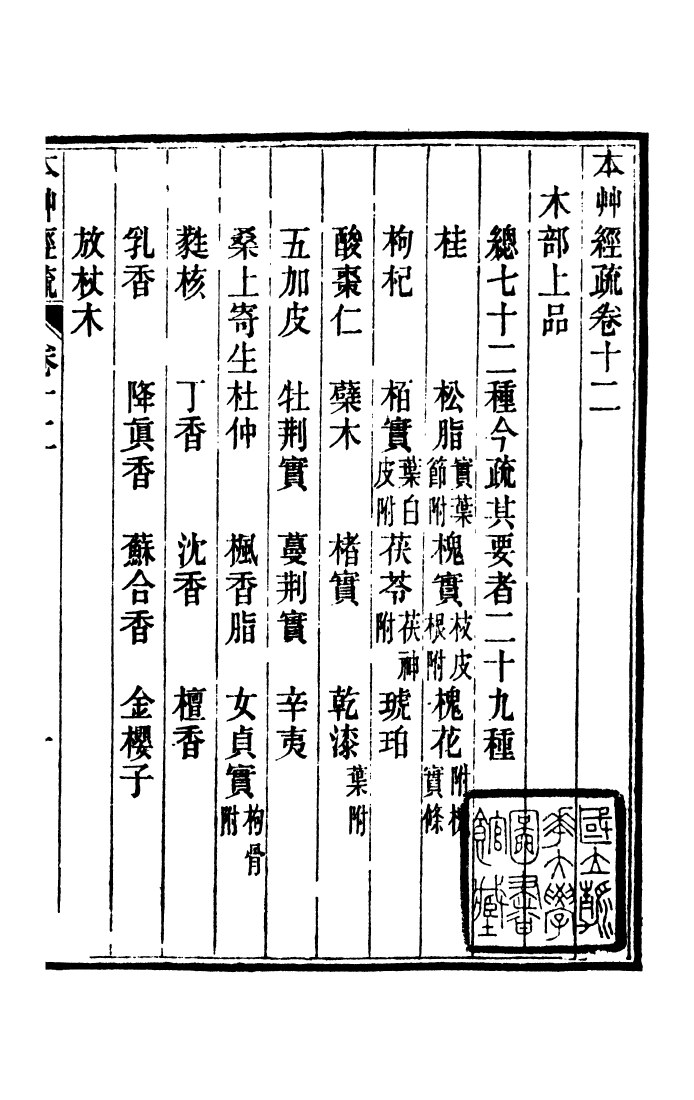 本艸經疏卷十二
木部上品
總七十二種今疏其要者二十九種
桂 松脂實葉節附 槐實枝皮根附 槐花附槐實條
枸杞 栢實葉白皮附 茯苓茯神附 琥珀
酸棗仁 蘗木 楮實 乾漆葉附
五加皮 牡荆實 蔓荆實 辛夷
桑上寄生 杜仲 楓香脂 女貞實枸骨附
蕤核 丁香 沈香 檀香
乳香 降眞香 蘇合香 金櫻子
放杖木
本艸經疏 卷十二 一
國立
大學
圖書
館